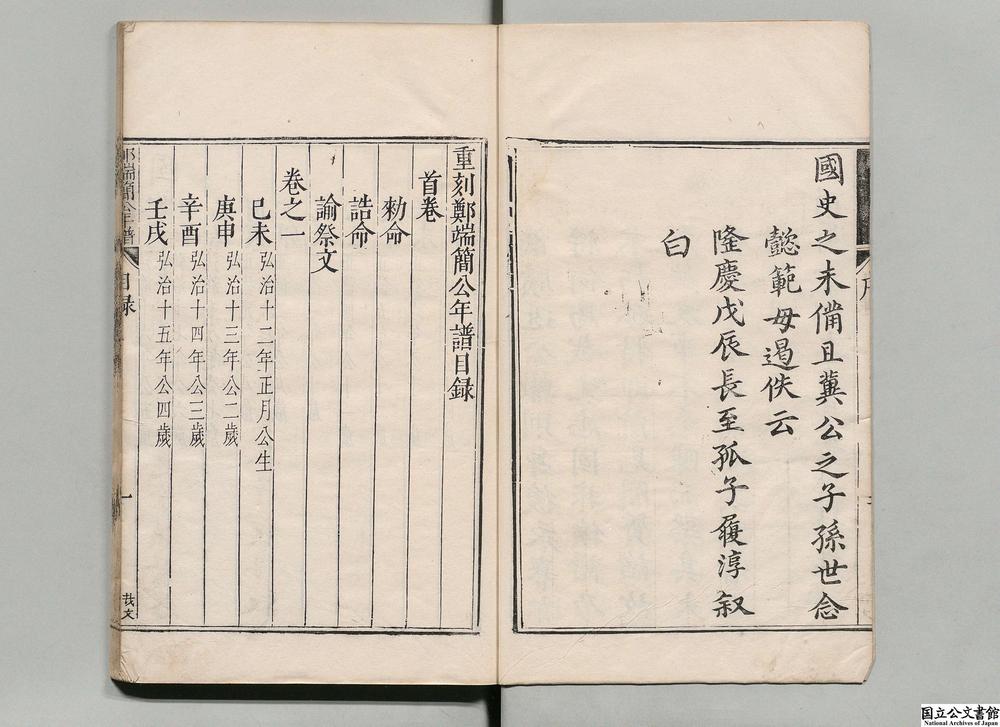 國史之未備且冀公之子孫世念
懿範毋遏佚云
隆慶戊辰長至孤子履淳叙
白
重刻鄭端簡公年譜目録
首卷
勑命
誥命
諭祭文
卷之一
己未 弘治十二年正月公生
庚申 弘治十三年公二歲
辛酉 弘治十四年公三歲
壬戌 弘治十五年公四歲
端簡公年譜 目録 一
国立公文書館
National Archives of Japan